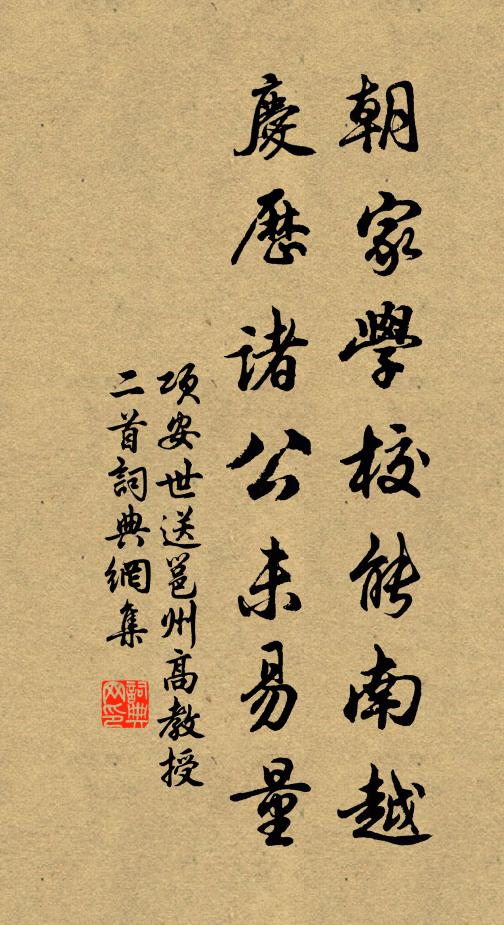 朝家學校能南越
慶歷諸公未易量
項安世送邕州高教授
二首詞典網集
詞典网印